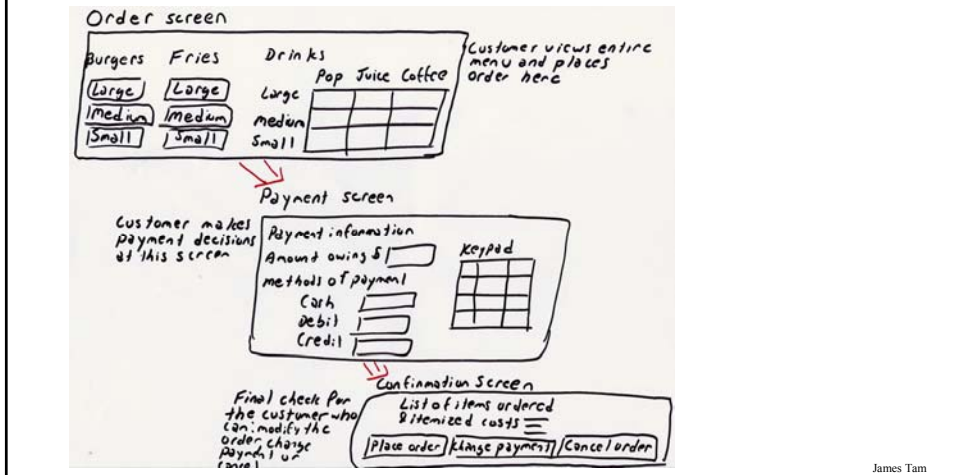 Order screen
Burgers Fries Drinks
Pop Juice Coffee
Large Large Large
Medium Medium medium
Small Small Small
Customer views entire
menu and places
order here
Payment screen
Customer makes
payment decisions
at this screen
Payment information
Amount owing $
methods of payment
Cash
Debit
Credit
Keypad
Confirmation Screen
Final check for
the customer who
can: modify the
order change
payment or
cancel
List of items ordered
& itemized costs
Place order Change payment Cancel order
James Tam